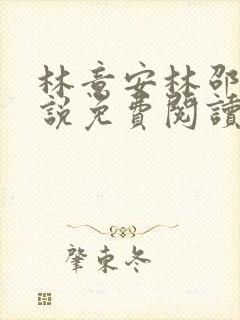 林意安林邵
說免費閱讀
肇東冬